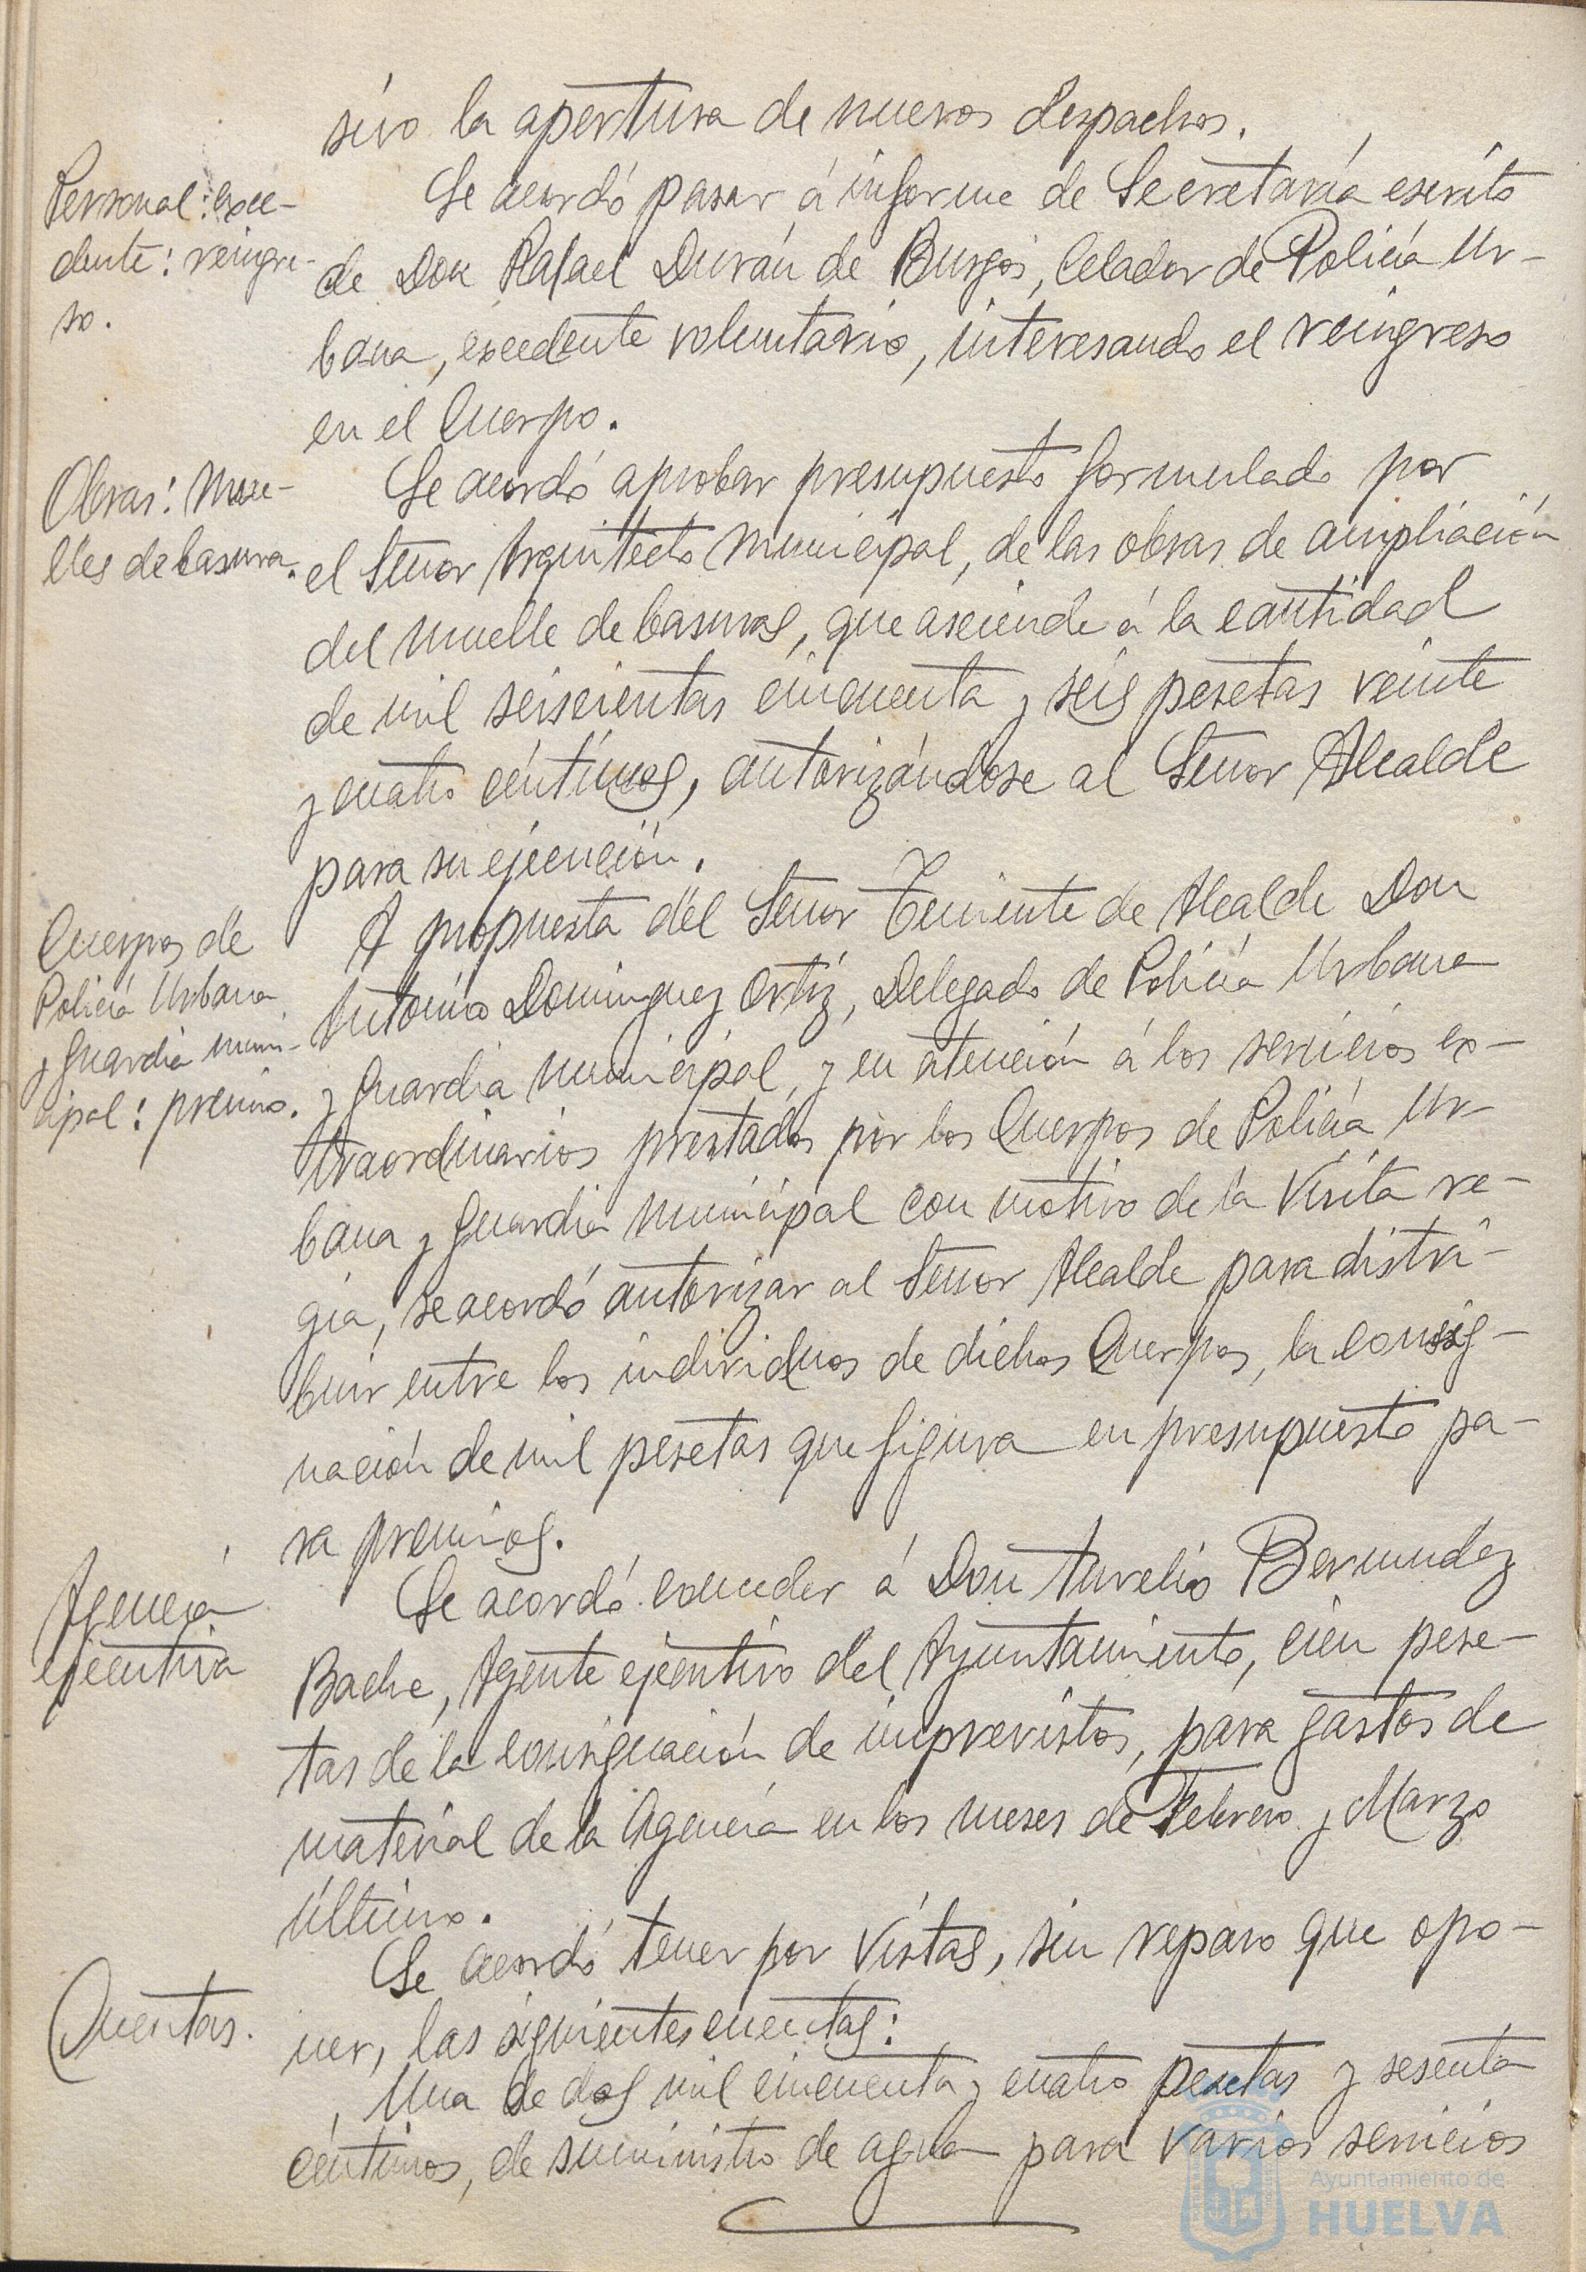 sivo la apertura de nuevos despachos.
Personal: exce-
dente: reingre-
so.
Se acordó pasar á informe de Secretaría escrito
de Don Rafael Durán de Burgos, Celador de Policía Ur-
bana, excedente voluntario, interesando el reingreso
en el Cuerpo.
Obras: Mue-
lles de basura.
Se acordó aprobar presupuesto formulado por
el Señor Arquitecto Municipal, de las obras de ampliación
del muelle de basuras, que asciende á la cantidad
de mil seiscientas cincuenta y seis pesetas veinte
y cuatro céntimos, autorizándose al Señor Alcalde
para su ejecución.
Cuerpos de
Policía Urbana
y guardia muni-
cipal: premio.
A propuesta del Señor Teniente de Alcalde Don
Antonio Dominguez Ortiz, Delegado de Policía Urbana
y Guardia municipal, y en atención á los servicios ex-
traordinarios prestados por los Cuerpos de Policía Ur-
bana y Guardia Municipal con motivo de la Visita re-
gia, se acordó autorizar al Señor Alcalde para distri-
buir entre los individuos de dichos Cuerpos, la consig-
nación de mil pesetas que figura en presupuesto pa-
ra premios.
Agencia
ejecutiva
Se acordó conceder á Don Aurelio Bermudez
Bache, Agente ejecutivo del Ayuntamiento, cien pese-
tas de la consignación de imprevistos, para gastos de
material de la Agencia en los meses de Febrero y Marzo
último.
Cuentas.
Se acordó tener por vistas, sin reparo que opo-
ner, las siguientes cuentas:
Una de dos mil cincuenta y cuatro pesetas y sesenta
céntimos, de suministro de agua para varios servicios
Ayuntamiento de
HUELVA